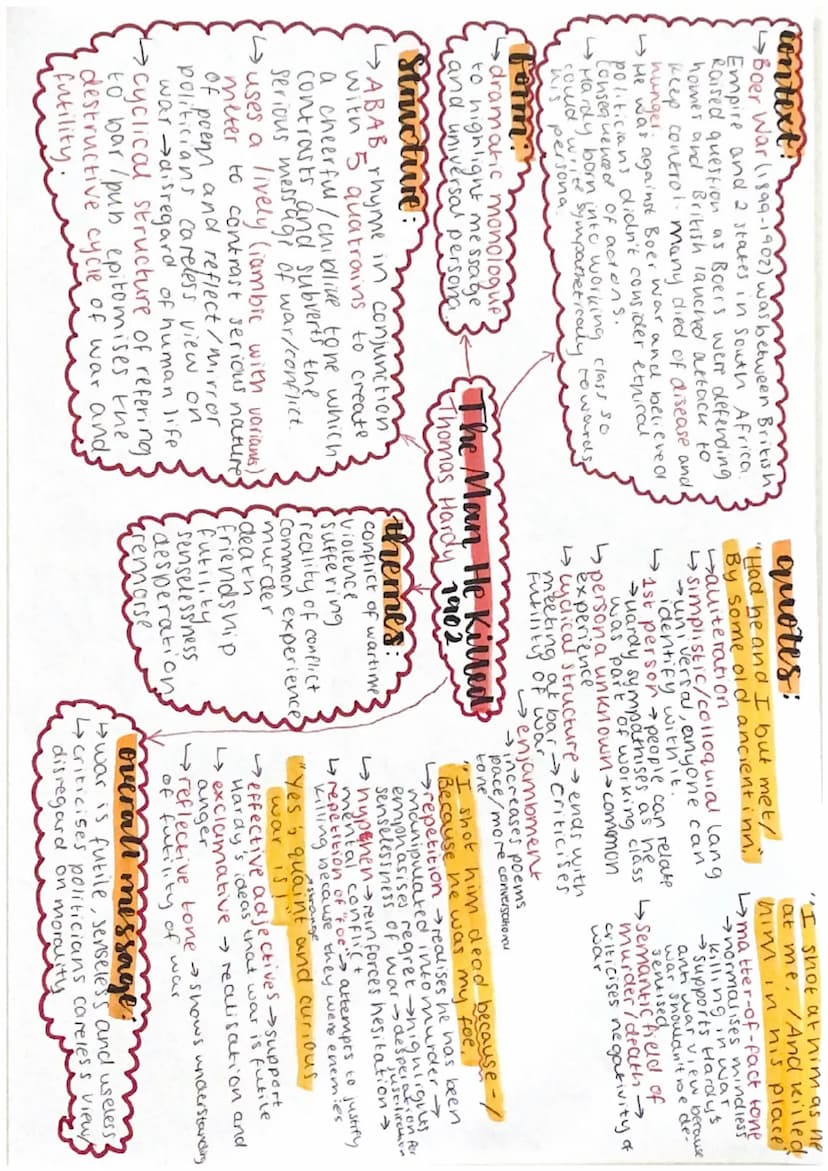 The Man He Killed
Thomas Hardy 1902
context:
↳ Boer War (1899-1902) was between British
Empire and 2 states in South Africa.
Raised question as Boers were defending
homes and British launched attack to
keep control. many died of disease and
hunger.
↳ He was against Boer war and believed
politicians didn't consider ethical
consequences of actions.
↳ Hardy born into working class so
could write sympathetically towards
his persona.
form:
↳ dramatic monologue
to highlight message
and universal persona.
Structure:
↳ ABAB rhyme in conjunction
with 5 quatrains to create
a cheerful/childlike tone which
contrasts and subverts the
serious message of war/conflict.
↳ uses a lively (iambic with variants)
meter to contrast serious nature
of poem and reflect/mirror
politicians careless view on
war → disregard of human life
↳ cyclical structure of refering
to bar/pub epitomises the
destructive cycle of war and
futility.
themes:
conflict of wartime
violence
suffering
reality of conflict
common experience
murder
death
friendship
futility
senselessness
desperation
remorse
overall message:
↳ war is futile, senseless and useless
↳ criticises politicians careless view/
disregard on morality
quotes:
"Had he and I but met/
By some old ancient inn"
↳ alliteration
↳ simplistic/colloquial lang
→ universal, anyone can
identify with it.
↳ 1st person → people can relate
→ Hardy sympathises as he
was part of working class
↳ persona unknown → common
experience
↳ cyclical structure → ends with
meeting at bar → criticises
futility of war
↳ enjambment
→ increases poems
pace/more conversational
tone
"I shot at him as he
at me, /And killed
him in his place"
↳ matter-of-fact tone
→ normalises mindless
killing in war
→ supports Hardy's
anti war view because
war shouldn't be de-
sensitised
↳ semantic field of
murder/death →
criticises negativity of
war
"I shot him dead because-/
Because he was my foe,
↳ repetition → realises he has been
manipulated into murder →
emphasises regret → highlights
senselessness of war → desperation for
justification
↳ hyphen → reinforces hesitation →
mental conflict
↳ repetition of "foe" → attempts to justify
killing because they were enemies
"Yes; quaint and curious
→ strange
war is!
↳ effective adjectives → support
Hardy's ideas that war is futile
↳ exclamative → realisation and
anger
↳ reflective tone → shows understanding
of futility of war